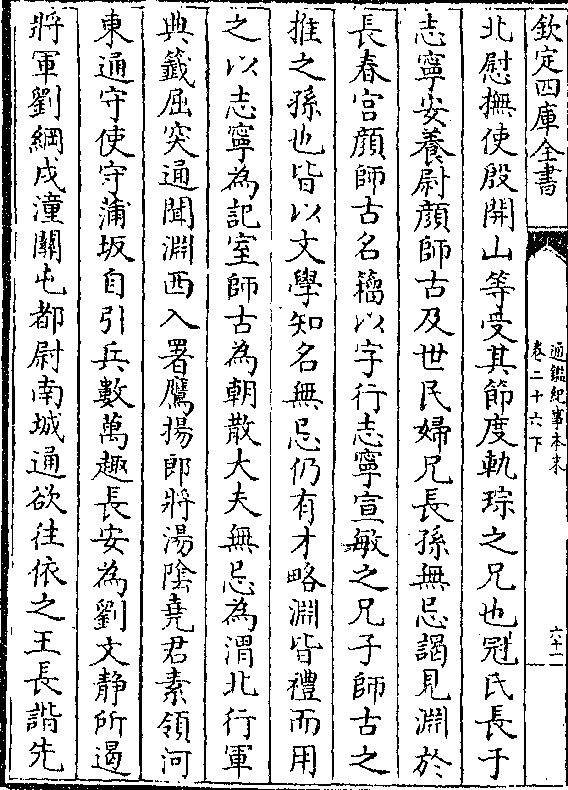 欽定四庫全書
通鑑紀事本末
卷二十六下
六十一
北慰撫使殷開山等受其節度軌琮之兄也冠氏長于
志寧安養尉顔師古及世民婦兄長孫無忌謁見淵於
長春宫顔師古名籀以字行志寧宣敏之兄子師古之
推之孫也皆以文學知名無忌仍有才略淵皆禮而用
之以志寧為記室師古為朝散大夫無忌為渭北行軍
典籤屈突通聞淵西入署鷹揚郎將湯陰堯君素領河
東通守使守蒲坂自引兵數萬趣長安為劉文静所遏
將軍劉綱戍潼關屯都尉南城通欲往依之王長諧先